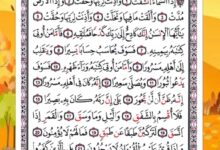 إِذَا ٱلسَّمَآءُ ٱنشَقَّتْ ۝ وَأَذِنَتْ لِرَبِّهَا وَحُقَّتْ ۝ وَإِذَا ٱلْأَرْضُ
مُدَّتْ ۝ وَأَلْقَتْ مَا فِيهَا وَتَخَلَّتْ ۝ وَأَذِنَتْ لِرَبِّهَا وَحُقَّتْ ۝
يَٰٓأَيُّهَا ٱلْإِنسَٰنُ إِنَّكَ كَادِحٌ إِلَىٰ رَبِّكَ كَدْحًا فَمُلَٰقِيهِ ۝ فَأَمَّا مَنْ أُوتِىَ
كِتَٰبَهُۥ بِيَمِينِهِۦ ۝ فَسَوْفَ يُحَاسَبُ حِسَابًا يَسِيرًا ۝ وَيَنقَلِبُ
إِلَىٰٓ أَهْلِهِۦ مَسْرُورًا ۝ وَأَمَّا مَنْ أُوتِىَ كِتَٰبَهُۥ وَرَآءَ ظَهْرِهِۦ ۝ فَسَوْفَ
يَدْعُوا۟ ثُبُورًا ۝ وَيَصْلَىٰ سَعِيرًا ۝ إِنَّهُۥ كَانَ فِىٓ أَهْلِهِۦ مَسْرُورًا ۝
إِنَّهُۥ ظَنَّ أَن لَّن يَحُورَ ۝ بَلَىٰٓ إِنَّ رَبَّهُۥ كَانَ بِهِۦ بَصِيرًا ۝ فَلَآ
أُقْسِمُ بِٱلشَّفَقِ ۝ وَٱلَّيْلِ وَمَا وَسَقَ ۝ وَٱلْقَمَرِ إِذَا ٱتَّسَقَ ۝
لَتَرْكَبُنَّ طَبَقًا عَن طَبَقٍ ۝ فَمَا لَهُمْ لَا يُؤْمِنُونَ ۝